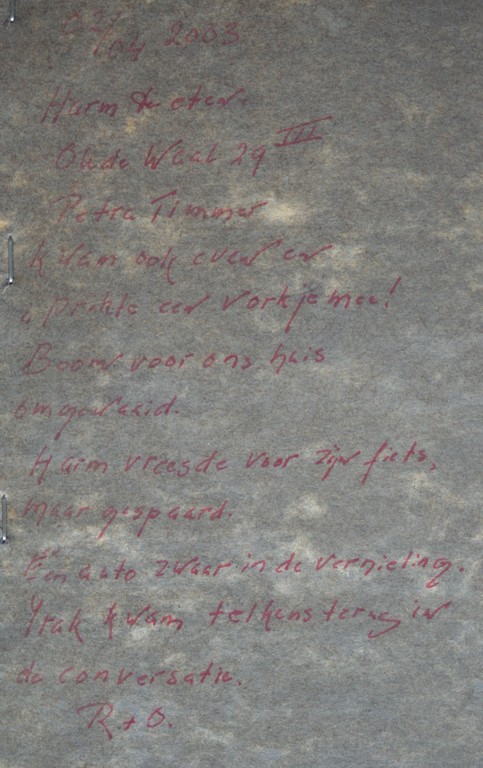 04 2003
Harm te eten.
Oude Waal 29 III
Petra Timmer
kwam ook even en
prikte een vorkje mee!
Boom voor ons huis
omgewaaid.
Harm vreesde voor zijn fiets,
maar gespaard.
Eén auto zwaar in de vernieling.
Irak kwam telkens terug in
de conversatie.
R + O.